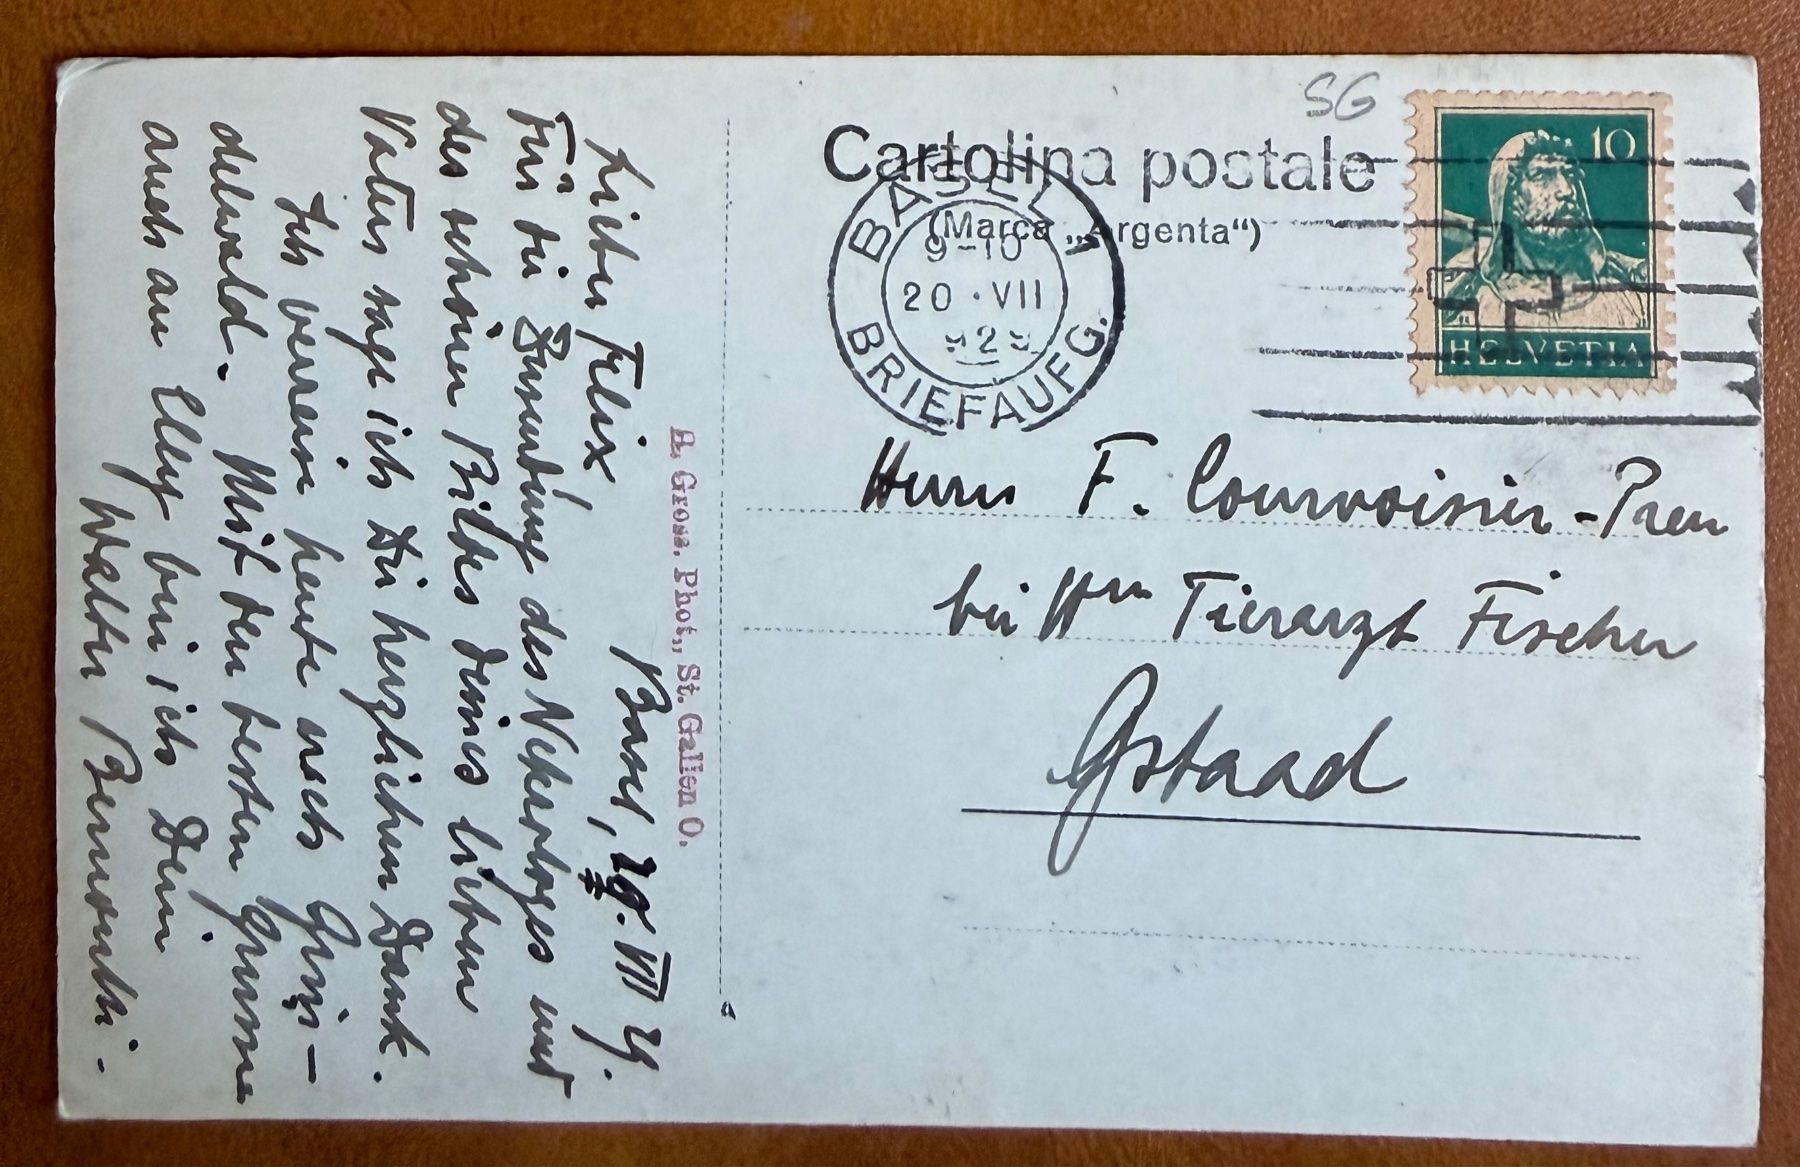 SG
Cartolina postale
(Marca „Argenta“)
BASEL 1
9-10
20·VII
929
BRIEFAUFG.
10
HELVETIA
Herrn F. Courvoisier-Preu
bei Hrn Tierarzt Fischer
Gstaad
A. Gross. Phot., St. Gallen O.
Basel, 29. VII 29.
Lieber Felix,
Für die Zusendung des Nekrologes und
des schönen Bildes deines lieben
Vaters sage ich Dir herzlichen Dank.
Ich verreise heute nach Grin-
delwald. Mit den besten Grüssen
auch an Elly bin ich Dein
Walter Bernoulli.